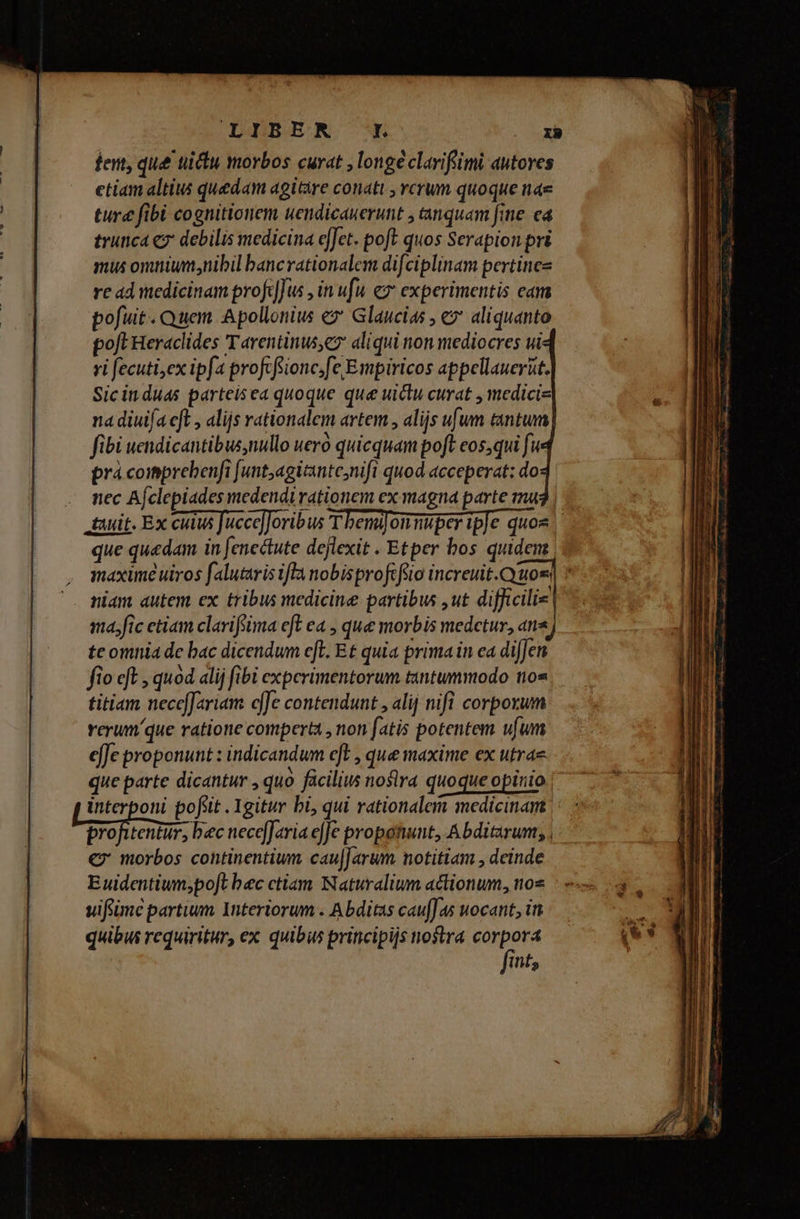 LIBER I.
tem, quæ uictu morbos curat, longè clarißimi autores
etiam altius quædam agitare conati, rerum quoque na=
turæ ſibi cognitionem uendicauerunt, tanquam ſine ea
trunca & debilis medicina eſſet. poſt quos Serapion pri
mus omnium, nihil hanc rationalem diſciplinam pertine=
re ad medicinam profeſſus, in uſu & experimentis eam
poſuit. Quem Apollonius & Glaucias, & aliquanto
poſt Heraclides Tarentinus, & aliqui non mediocres ui=
ri ſecuti, ex ipſa profeßione, ſe Empiricos appellauerūt.
Sic in duas parteis ea quoque quæ uictu curat, medici=
na diuiſa eſt, alijs rationalem artem, alijs uſum tantum
ſibi uendicantibus, nullo uerò quicquam poſt eos, qui ſu=
prà comprehenſi ſunt, agitante, niſi quod acceperat: do=
nec Aſclepiades medendi rationem ex magna parte mu=
tauit. Ex cuius ſucceſſoribus Themiſon nuper ipſe quo=
que quædam in ſenectute deflexit. Et per hos quidem
maximè uiros ſalutaris iſta nobis profeßio increuit. Quo=
niam autem ex tribus medicinæ partibus, ut difficili=
ma, ſic etiam clarißima eſt ea, quæ morbis medetur, an=
te omnia de hac dicendum eſt. Et quia prima in ea diſſen
ſio eſt, quòd alij ſibi experimentorum tantummodo no=
titiam neceſſariam eſſe contendunt, alij niſi corporum
rerum'que ratione comperta, non ſatis potentem uſum
eſſe proponunt: indicandum eſt, quæ maxime ex utra=
que parte dicantur, quò facilius noſtra quoque opinio
interponi poßit. Igitur hi, qui rationalem medicinam
profitentur, hæc neceſſaria eſſe proponunt, Abditarum,
& morbos continentium cauſſarum notitiam, deinde
Euidentium, poſt hæc etiam Naturalium actionum, no=
uißimè partium Interiorum. Abditas cauſſas uocant, in
quibus requiritur, ex quibus principijs noſtra corpora
ſint,